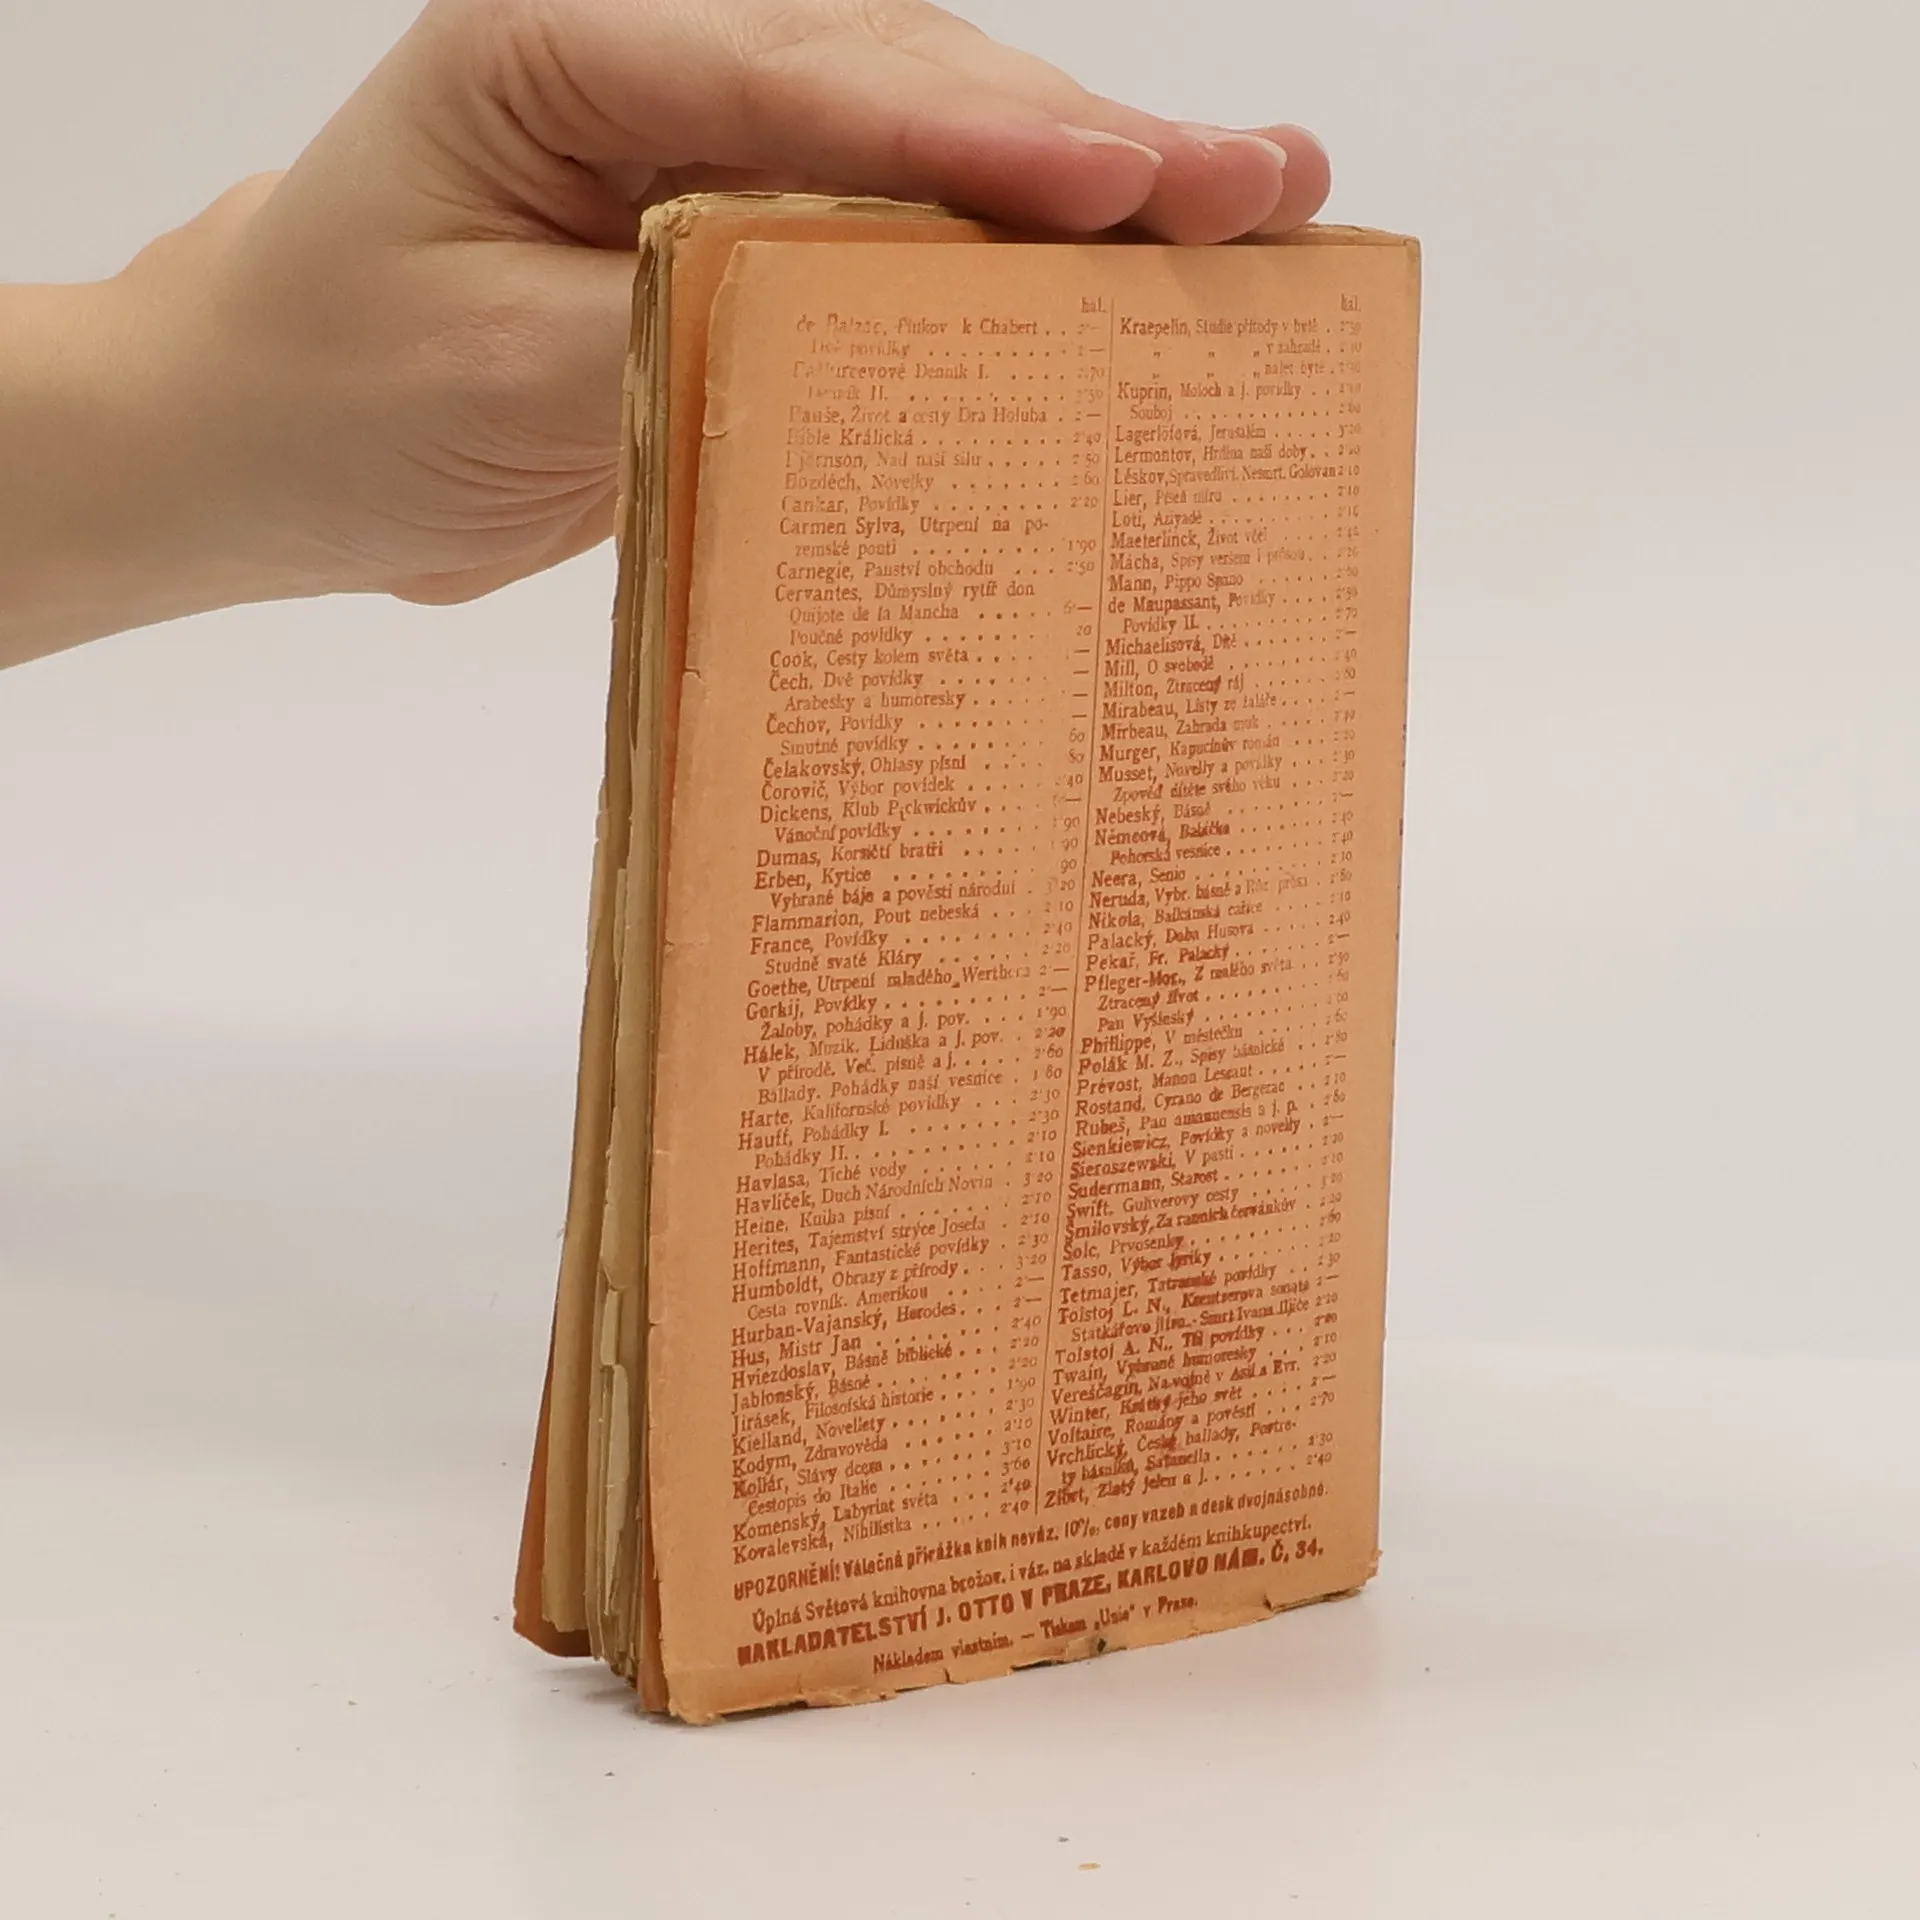 hal.
de Balzac, Plukov k Chabert . . 2'—
Dvě povídky . . . . . . . . . 2'—
Denník I. . . . . 2'70
Denník II. . . . . . . . . . 2'50
Bauše, Život a cesty Dra Holuba . 2'—
Bible Králická . . . . . . . . . 2'40
Björnson, Nad naši sílu . . . . . 2'50
Bozděch, Novelky . . . . . . . 2'60
Cankar, Povídky . . . . . . . . 2'20
Carmen Sylva, Utrpení na po-
zemské pouti . . . . . . . . . 1'90
Carnegie, Panství obchodu . . . 2'50
Cervantes, Důmyslný rytíř don
Quijote de la Mancha . . . . . 6'—
Poučné povídky . . . . . . . 20
Cook, Cesty kolem světa . . . . —
Čech, Dvě povídky . . . . . . . —
Arabesky a humoresky . . . . . —
Čechov, Povídky . . . . . . . . —
Smutné povídky . . . . . . . . 60
Čelakovský, Ohlasy písní . . . . 80
Čorovič, Výbor povídek . . . . . 40
Dickens, Klub Pickwickův . . . . —
Vánoční povídky . . . . . . . 1'90
Dumas, Korsičtí bratři . . . . . 1'90
Erben, Kytice . . . . . . . . . 90
Vybrané báje a pověsti národní . 3'20
Flammarion, Pout nebeská . . . 2'10
France, Povídky . . . . . . . . 2'40
Studně svaté Kláry . . . . . . 2'20
Goethe, Utrpení mladého Werthera 2'—
Gorkij, Povídky . . . . . . . . . 2'—
Žaloby, pohádky a j. pov. . . . 1'90
Hálek, Muzik. Liduška a j. pov. . 2'20
V přírodě. Več. písně a j. . . . . 2'60
Ballady. Pohádky naší vesnice . 1'80
Harte, Kalifornské povídky . . . 2'30
Hauff, Pohádky I. . . . . . . . 2'30
Pohádky II. . . . . . . . . . 2'10
Havlasa, Tiché vody . . . . . . 2'10
Havlíček, Duch Národních Novin . 3'20
Heine, Kniha písní . . . . . . . 2'10
Herites, Tajemství strýce Josefa . 2'10
Hoffmann, Fantastické povídky . 2'30
Humboldt, Obrazy z přírody . . . 3'20
Cesta rovník. Amerikou . . . . 2'—
Hurban-Vajanský, Herodes . . . 2'—
Hus, Mistr Jan . . . . . . . . . 2'40
Hviezdoslav, Básně biblické . . . 2'20
Jablonský, Básně . . . . . . . . 2'20
Jirásek, Filosofská historie . . . . 1'90
Kielland, Novelletty . . . . . . . 2'30
Kodym, Zdravověda . . . . . . 2'10
Kollár, Slávy dcera . . . . . . . 3'10
Cestopis do Italie . . . . . . . 3'60
Komenský, Labyrint světa . . . 2'40
Kovalevská, Nihilistka . . . . . 2'40
hal.
Kraepelin, Studie přírody v bytě . 2'30
„ „ „ v zahradě . 2'10
„ „ „
Kuprin, Moloch a j. povídky . .
Souboj . . . . . . . . . . . 2'60
Lagerlöfová, Jerusalém . . . . . 3'20
Lermontov, Hrdina naší doby . . 2'20
Lěskov, Spravedliví. Nesmrt. Golovan 2'10
Lier, Píseň míru . . . . . . . . 2'10
Loti, Aziyadé . . . . . . . . . .
Maeterlinck, Život včel . . . . .
Mácha, Spisy veršem i prósou . .
Mann, Pippo Spano . . . . . . 2'60
de Maupassant, Povídky . . . . 2'50
Povídky II. . . . . . . . . . . 2'70
Michaelisová, Dítě . . . . . . . 2'—
Mill, O svobodě . . . . . . . . 2'40
Milton, Ztracený ráj . . . . . . 2'80
Mirabeau, Listy ze žaláře . . . . 2'—
Mirbeau, Zahrada muk . . . . .
Murger, Kapucínův román . . . 2'20
Musset, Novelly a povídky . . . 2'30
Zpověď dítěte svého věku . . . 2'20
Nebeský, Básně . . . . . . . . 2'—
Němcová, Babička . . . . . . . 2'40
Pohorská vesnice . . . . . . . 2'40
Neera, Senio . . . . . . . . . . 2'10
Neruda, Vybr. básně a Růz. prósa . 2'80
Nikola, Balkánská cařice . . . . 2'10
Palacký, Doba Husova . . . . . 2'40
Pekař, Fr. Palacký . . . . . . . 2'—
Pfleger-Mor., Z malého světa . . 2'50
Ztracený život . . . . . . . . 2'60
Pan Vyšínský . . . . . . . . . 2'60
Philippe, V městečku . . . . . . 2'60
Polák M. Z., Spisy básnické . . . 2'80
Prévost, Manon Lescaut . . . . . 2'—
Rostand, Cyrano de Bergerac . . 2'10
Rubeš, Pan amanuensis a j. p. . 2'80
Sienkiewicz, Povídky a novelly . 2'—
Sieroszewski, V pasti . . . . . . 2'20
Sudermann, Starost . . . . . . . 2'10
Swift, Gulliverovy cesty . . . . . 3'20
Šmilovský, Za ranních červánkův . 2'20
Šolc, Prvosenky . . . . . . . . . 2'60
Tasso, Výbor lyriky . . . . . . . 2'20
Tetmajer, Tatranské povídky . . 2'30
Tolstoj L. N., Kreutzerova sonáta 2'—
Statkářovo jitro. - Smrt Ivana Iljiče 2'20
Tolstoj A. N., Tři povídky . . .
Twain, Vybrané humoresky . . . 2'10
Vereščagin, Na vojně v Asii a Evr. 2'20
Winter, Krátký jeho svět . . . . 2'—
Voltaire, Romány a pověsti . . . 2'70
Vrchlický, České ballady, Portre-
ty básníků, Satanella . . . . . . 2'30
Zíbrt, Zlatý jelen a j. . . . . . . 2'40
UPOZORNĚNÍ! Válečná přirážka knih neváz. 10%, ceny vazeb a desk dvojnásobné.
Úplná Světová knihovna brožov. i váz. na skladě v každém knihkupectví.
NAKLADATELSTVÍ J. OTTO V PRAZE, KARLOVO NÁM. Č. 34.
Nákladem vlastním. — Tiskem „Unie" v Praze.